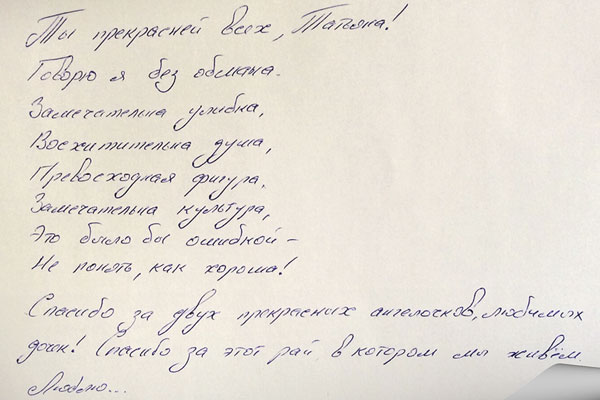 Ты прекрасней всех, Татьяна!
Говорю я без обмана.
Замечательна улыбка,
Восхитительна душа,
Превосходная фигура,
Замечательна культура,
Это было бы ошибкой –
Не понять, как хороша!
Спасибо за двух прекрасных ангелочков, любимых
дочк! Спасибо за этот рай, в котором мы живём
Люблю...